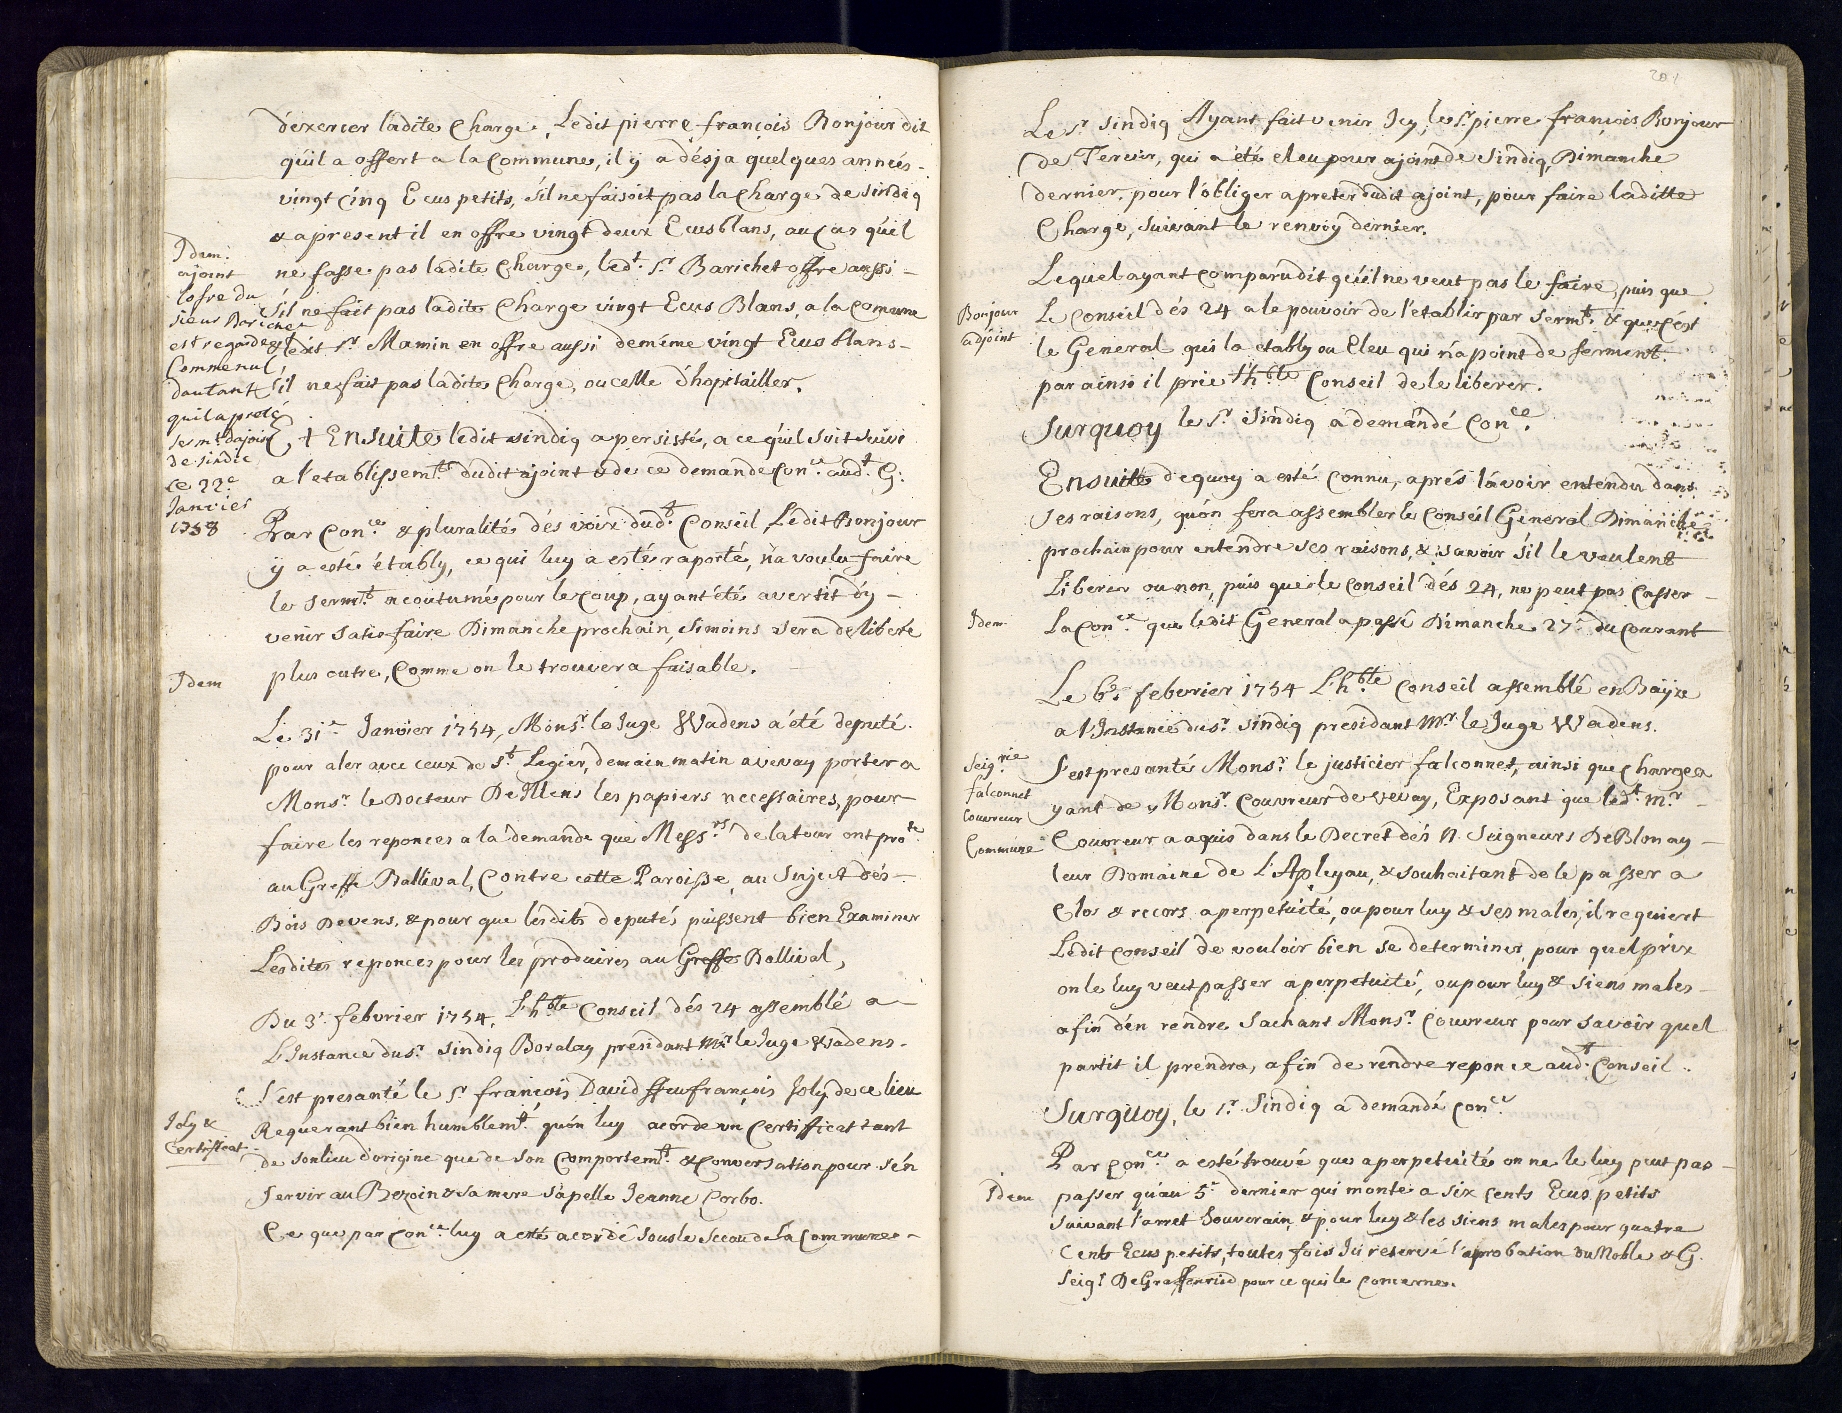 d'exercer ladite Charge, Ledit pierre françois Bonjour dit
qu'il a offert a la Commune, il y a désja quelques années -
vingt cinq Ecus petits, s'il ne faisoit pas la Charge de Sindiq
& apresent il en offre vingt deux Ecus blans, au cas qu'il
ne fasse pas ladite Charge, led.t S.r Barichet offre aussi -
s'il ne fait pas ladite Charge vingt Ecus Blans, a la Comune
& ledit S.r Mamin en offre aussi de méme vingt Ecus blans -
s'il ne fait pas ladite Charge, ou celle d'hopitailler.
Idem.
ajoint
lofre du
sieur Barichet
est regardée
Comme nul,
dautant
quil a preté
serm.t dajoint
de sindic
ce 22.e
Janvier
1758
+ Ensuite ledit sindiq a persisté, a ce qu'il soit suivi
a l'etablissem.t dudit ajoint & de ce demande Con.ce aud.t G:
Par Con.ce & pluralité dés voix dud.t Conseil, Ledit Bonjour
y a esté établÿ, ce qui luy a esté raporté, n'a voulu faire
le serm.t acoutumé pour le coup, ayant été avertit d'y -
venir satisfaire Dimanche prochain, si moins sera déliberé
plus outre, Comme on le trouvera faisable.
Idem
Le 31.e Janvier 1754, Mons.r le Juge Wadens a été deputé
pour aler avec ceux de S.t Legier, demain matin a vevay porter a
Mons.r le Docteur De Illens les papiers necessaires, pour
faire les reponces a la demande que Mess.rs de la tour ont pro.te
au Greffe Ballival, Contre cette Paroisse, au Suject dés -
Bois Devens, & pour que lesdits deputés puissent bien Examiner
Lesdites reponces pour les produires au Greffe Ballival,
Du 3.e febvrier 1754, L'h.ble Conseil dés 24 assemblé a -
L'Instance du S.r Sindiq Boralay presidant M.r le Juge Wadens -
S'est presanté le S.r françois David ffeu françois Joly de ce lieu
Requerant bien humblem.t qu'on luy acorde un Certifficat tant
de son lieu d'origine que de son Comportem.t & Conversation pour s'én
servir au Bezoin & sa mere s'apelle Jeanne Corbo.
Joly &
Certificat
Ce que par Con.ce luy a esté acordé sous le Sceau de La Commune -
201
Le S.r Sindiq Ayant fait venir Icy, le S.r pierre françois Bonjour
de Tercier, qui a été eleu pour ajoint de Sindiq, Dimanche
dernier, pour l'obliger a preter dudit ajoint, pour faire laditte
Charge, suivant le renvoy dernier.
Lequel ayant comparu dit qu'il ne veut pas le faire, puis que
Le Conseil dés 24 a le pouvoir de l'etablir par serm.t & que c'est
le General qui la etably ou Eleu qui n'a point de serment
par ainsi il prie l'h.ble Conseil de le liberer.
Bonjour
adjoint
Surquoy le S.r Sindiq a demandé Con.ce
Ensuite dequoy a esté Connu, aprés l'avoir entendu dans
ses raisons, qu'on fera assembler le Conseil General Dimanche
prochain pour entendre ses raisons, & savoir s'il le veulent
Liberer ou non, puis que le Conseil dés 24, ne peut pas Casser -
La Con.ce que ledit General a passé Dimanche 27.e du Courant
Idem
Le 6.e febvrier 1754 L'h.ble Conseil assemblé en Baÿze
a l'Instance du S.r Sindiq presidant M.r le Juge Wadens.
S'est presanté Mons.r le justicier falconnet, ainsi que Charge a
yant de Mons.r Couvreur de vevay, Exposant que led.t M.r -
Couvreur a aquis dans le Decret dés N. Seigneurs De Blonay -
leur Domaine de L'Apleyau, & souhaitant de le passer a
Clos & recors a perpetuité, ou pour luy & ses males, il requiert
Ledit Conseil de vouloir bien se determiner, pour quel prix
on le luy veut passer a perpetuité, ou pour luy & siens males -
afin d'en rendre Sachant Mons.r Couvreur pour savoir quel
partit il prendra, afin de rendre reponce aud.t Conseil ..
Seig.rie
falconnet
Couvreur
Commune
Surquoy, le S.r Sindiq a demandé Con.ce
Par Con.ce a esté trouvé que a perpetuité on ne le luy peut pas -
passer qu'au 5.e dernier qui monte a six cents Ecus petits
suivant l'arret Souverain, & pour luy & les siens males pour quatre
Cents Ecus petits, toutes fois Ici reservé l'aprobation du Noble & G.
Seig.r De Graffenried pour ce qui le Concerne.
Idem